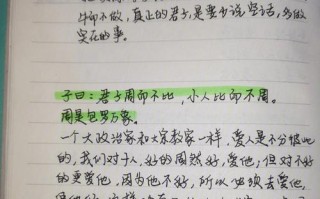 牛而不做，真正的君子，是要少说些话，多做
实在的事。
子曰：君子周而不比，小人比而不周。
周是包罗万象。
一个大政治家和大宗教家一样，爱人是不分彼此
的，我们对于人，好的固然好，爱他；但对不好
的更爱他，因为他不好，所以必须去爱他，